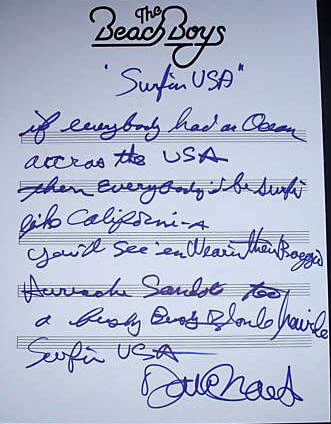 The
Beach Boys
"Surfin USA"
if everybody had an Ocean
accros the USA
then Everybody'd be Surfin
like Californi-A
You'll See 'em Wearin their Baggies
Huarachi Sandols too
a bushy Bushy Blonde hairdo
Surfin USA